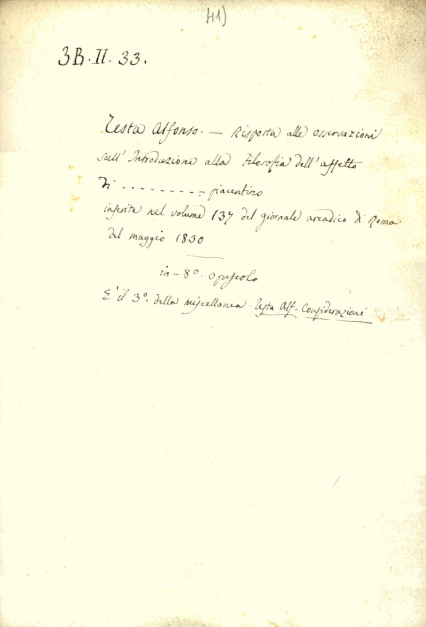 41)
3B. II. 33.
Testa Alfonso. — Risposta alle osservazioni
sull' Introduzione alla Filosofia dell' affetto
Di - - - - - - - - - piacentino
inserite nel volume 137 del giornale arcadico di Roma
del maggio 1830
in-8°. opuscolo
E' il 3°. della miscellanea Testa Alf. Considerazioni